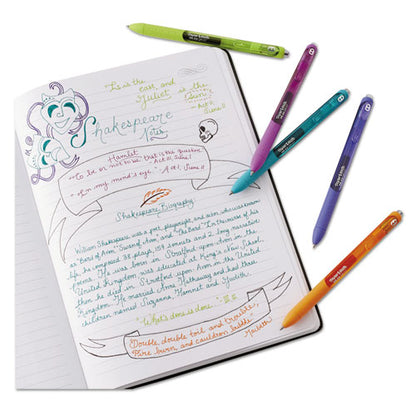 'Tis the
east, and
Juliet is the
Shakespeare
Notes
Hamlet
"To be or not to be: that is the question"
"In my mind's eye." - Act I, Scene II
Shakespeare Biography
William Shakespeare was a poet, playwright, and actor who was known
as "Bard of Avon," "Swan of Avon," and "The Bard." In the course of his
life, he composed 38 plays, 154 sonnets and 2 long narrative
poems. He was born in Stratford upon Avon in the
United Kingdom, was educated at King's New School,
then he died in Stratford upon Avon in the United
Kingdom. He married Anne Hathaway and had three
children named Susanna, Hamnet and Judith.
"What's done is done."
Double, double toil and trouble,
Fire burn, and cauldron bubble.
Macbeth